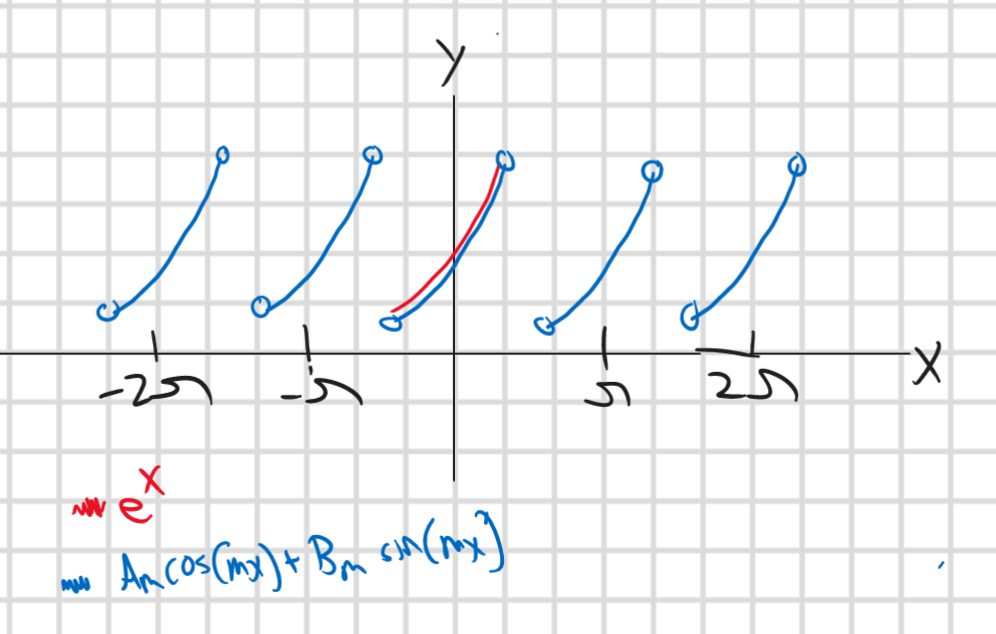 y
-2π -π π 2π X
e^x
A_m cos(mx) + B_m sin(mx)